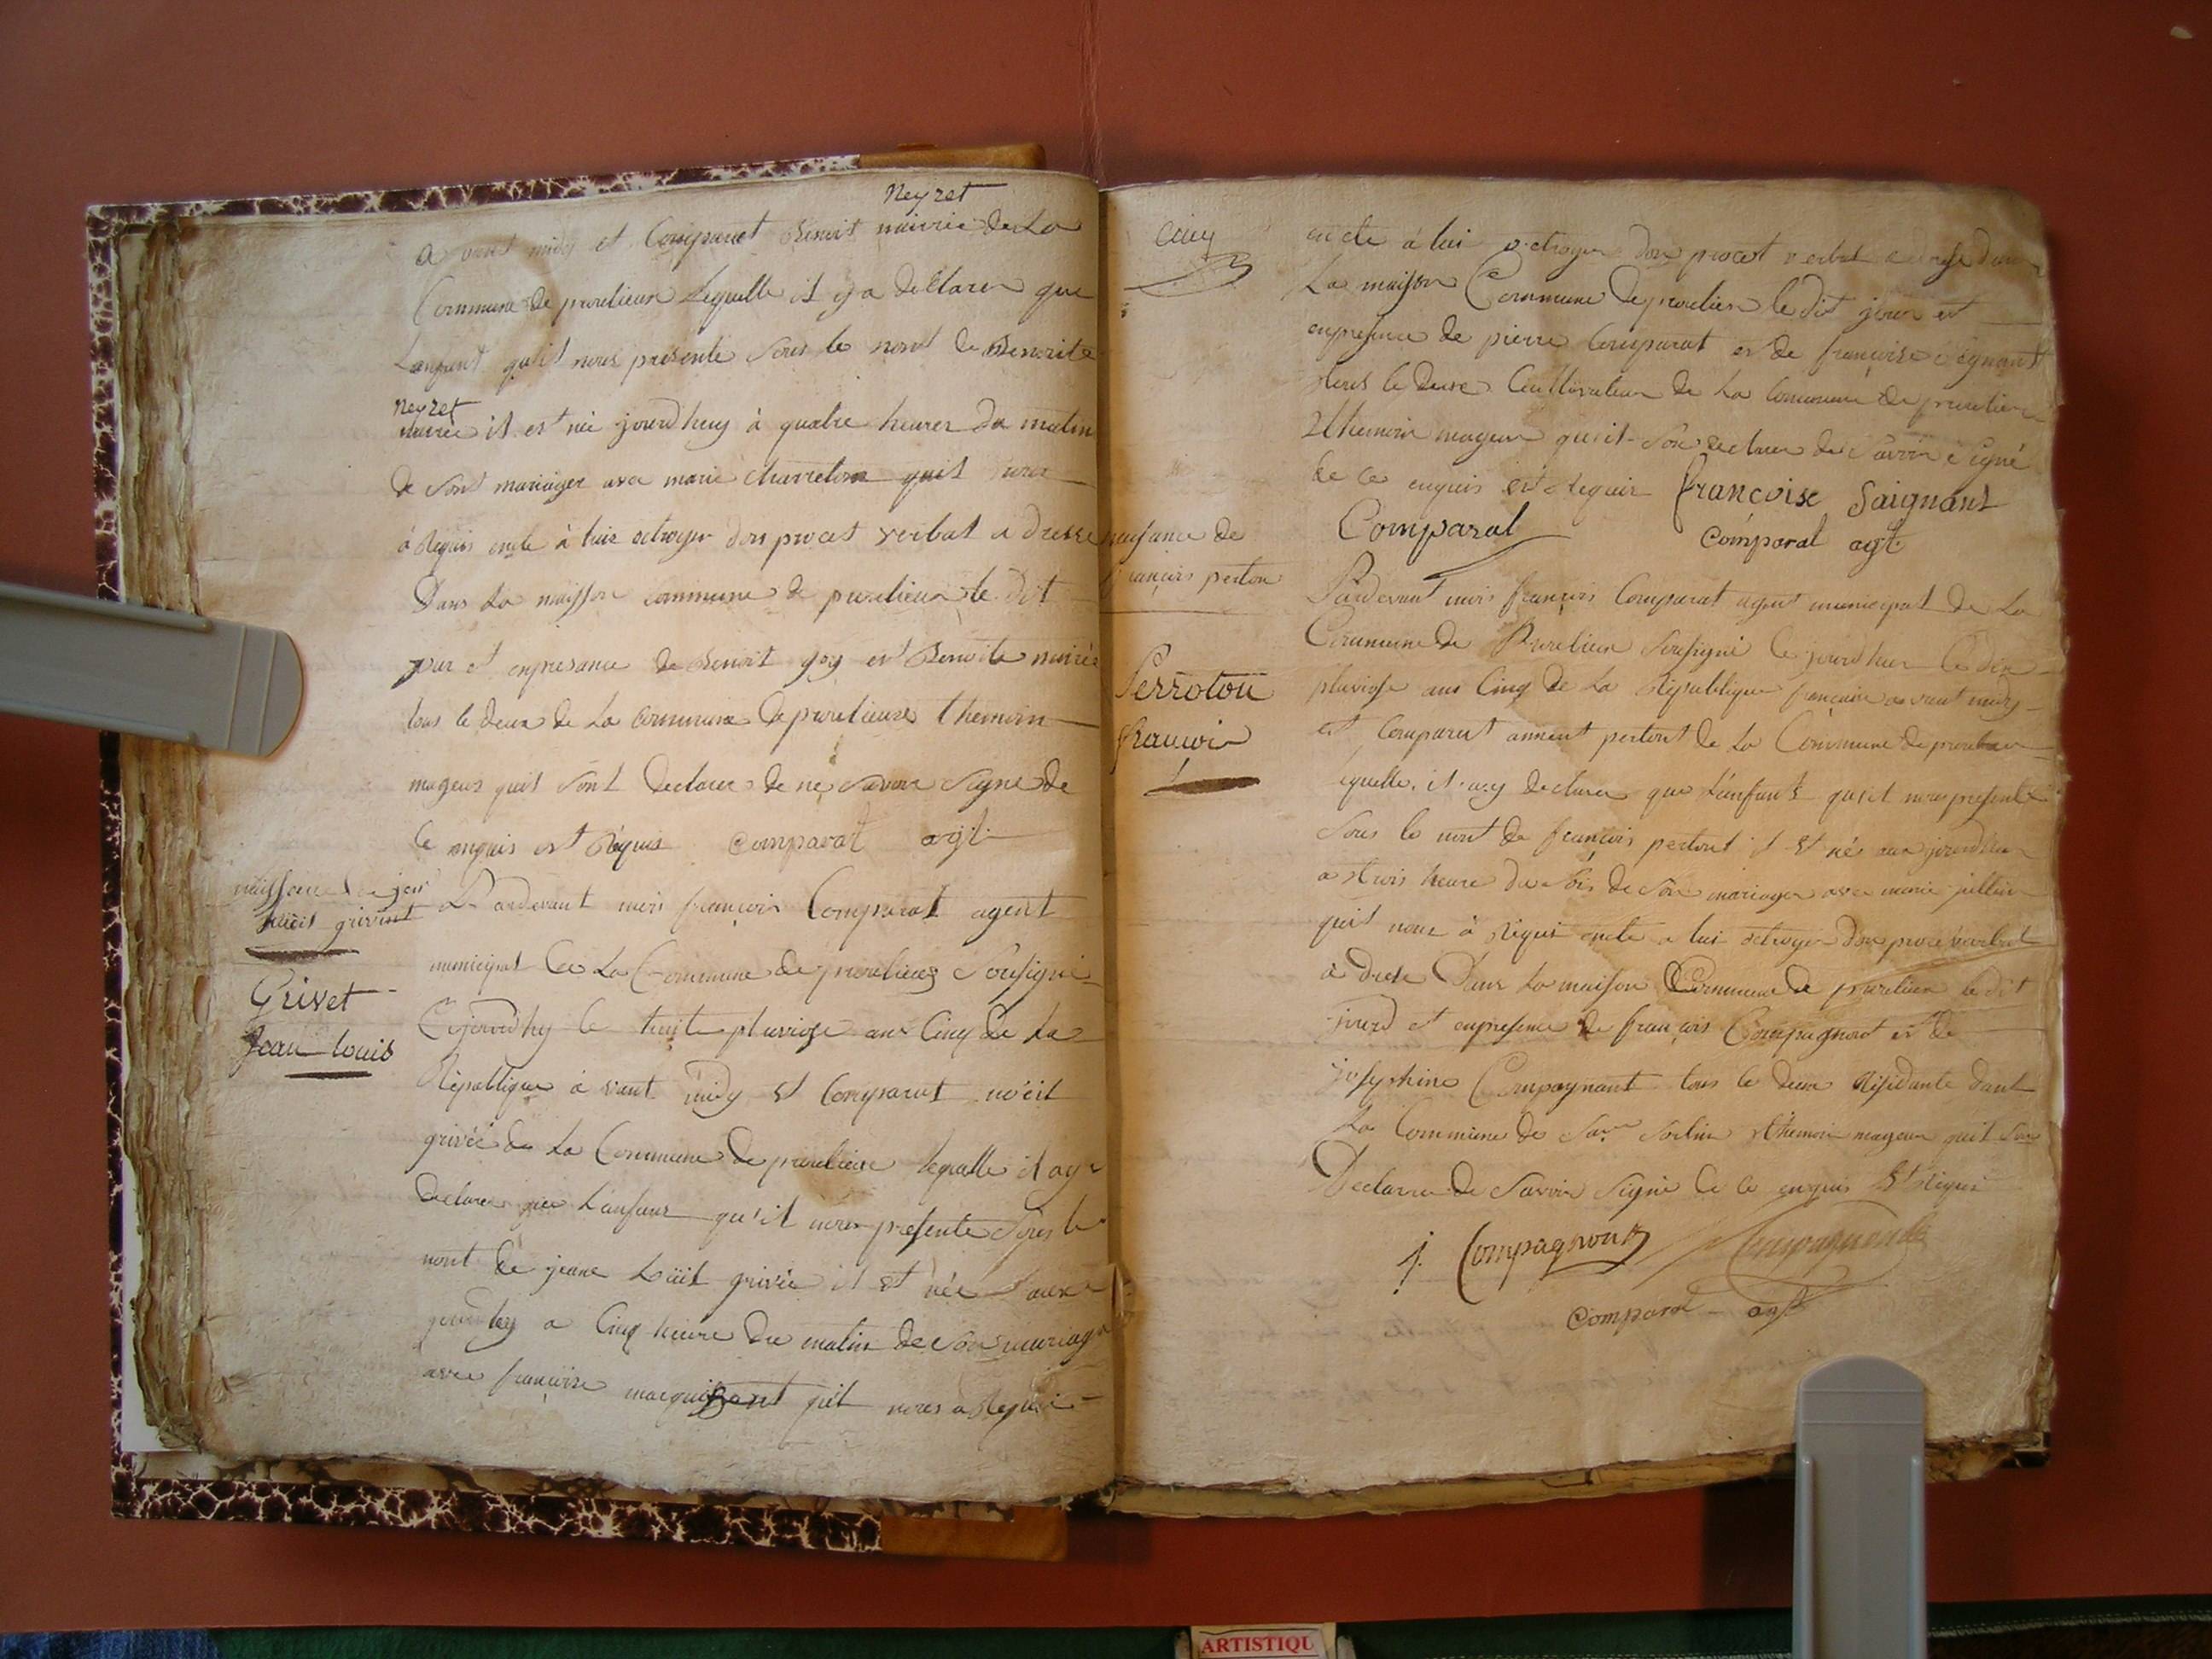 Neyret
a vant midy et Comparut Benoit nairié de La
Commune de purelieur Lequelle il y a dellarer que
Lanfent qu'il nous presente sous le nont de Benoite
Neyret
nairée il est née jourdhuy à quatre heures du matin
de Sont mariager avec marie charreton quil nous
à Requis acte à luis octroyer don procet verbat a dresse
Dans La maisson commune de purelieur le dit
jour et enpresance de Benoit goy est Benoite nairée
tous le deux de La commune de purelieure themoin
mageur quil Sont declarer de ne Savoir Signe de
ce enquis est Requis Comparat agt
naissance de jean
Louit grivet
Grivet
Jean Louis
Pardevant mois françois Comparat agent
municipal de La Commune de purelieur Sousigné
Cejourdhy le huite pluviose ans Cinq de La
Republique à vant midy est Comparut
grivée de La Commune de purelieur lequelle il ay
declarer que Lanfant qu'il nous presente Sous le
nont de jeane Loüit grivée il est née aux
jourdhuy a Cinq heure du matin de Son mariage
avec françoise qu'il nous a Requis
Cinq
acte à lui octroyer don procet verbal adresse dans
La maison Commune de purelieur le dit jour et
enpresence de pierre Comparat et de françoise
tous le deux Cultivateur de La Commune de purelieur
themoin mageur qu'il Son declarer de Savoir Signé
de ce enquis est Requis françoise Saignant
Comparal Comparal agt
naisance de
françois perton
Perroton
françois
Pardevant mois françois Comparat agent municipal de La
Commune de Purelieur Sousigné Ce jourdhui le dix
pluviose ans Cinq de La Republique française a vant midy
est Comparut pertont de La Commune de purelieur
lequelle il ay declarer que Lanfant qu'il nous presente
Sous le nont de françois pertont il est né aux jourdhui
a trois heure du Soir de Son mariager avec marie jullien
quil nous à Requis acte a lui octroyer don procet verbal
a dresse Dans La maison Commune de purelieur le dit
jourd et enpresence de françois Compagnont et de
josephine Compagnant tous le deux Residante dant
La Commune de Sorlin themoin mageur quil Son
Declarer de Savoir Signé de ce enquis est Requis
f. Compagnont Compagnont
Comparal agt
ARTISTIQU